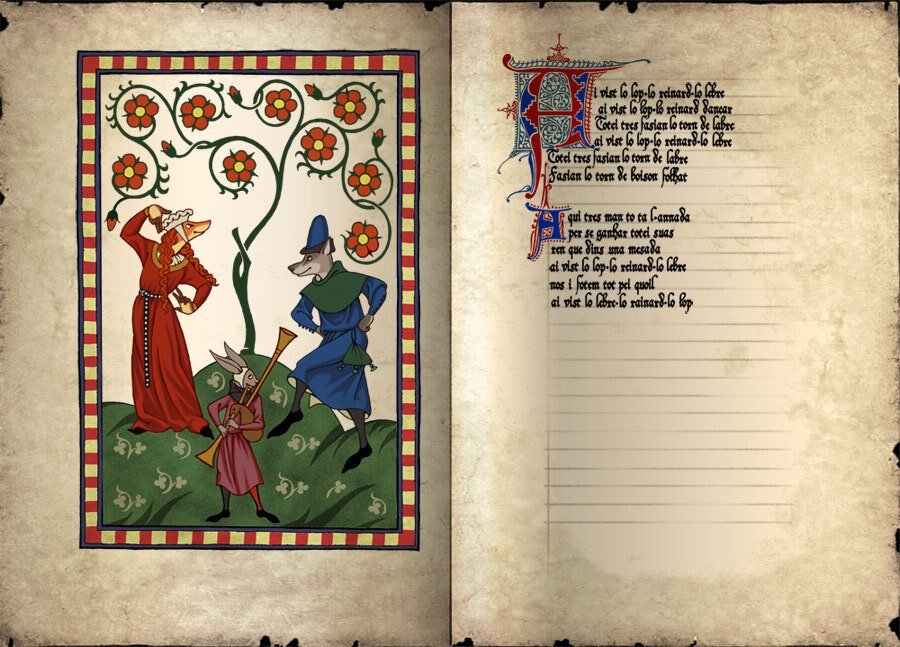 Ai vist lo lop-lo reinard-lo lebre
ai vist lo lop-lo reinard dancar
Totei tres fasian lo torn de labre
ai vist lo lop-lo reinard-lo lebre
Totei tres fasian lo torn de labre
Fasian lo torn de boison folhat
Aqui tres man to ta l-annada
per se ganhar totei suas
ren que dins una mesada
ai vist lo lop-lo reinard-lo lebre
nos i fotem tot pel quoil
ai vist lo lebre-lo rainard-lo lop